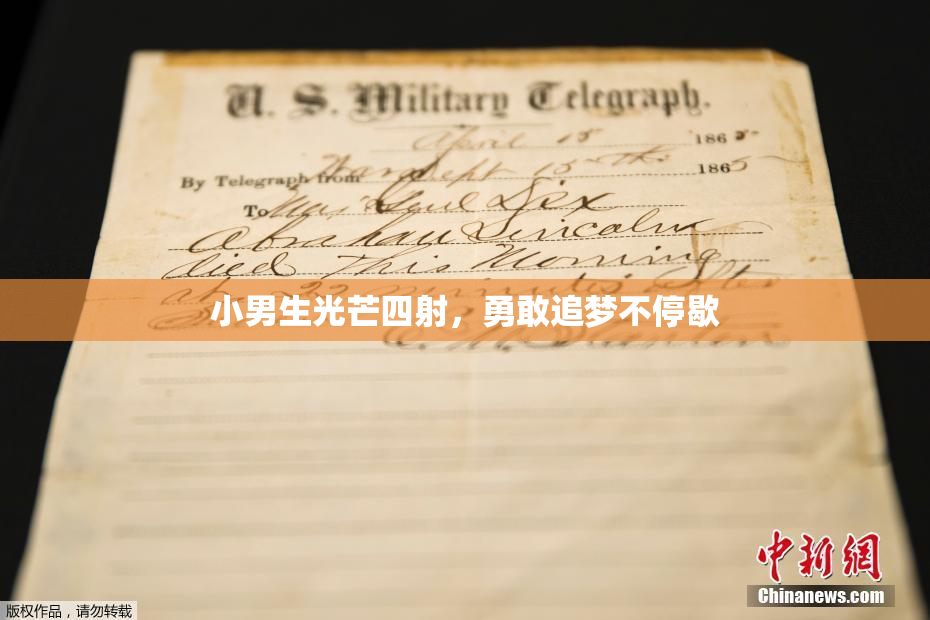 U. S. Military Telegraph.
April 15 1865
By Telegraph from War Dept 15th 1865
To Maj Genl Dix
Abraham Lincoln
died This Morning
at 22 minutes after
小男生光芒四射，勇敢追梦不停歇
Stanton
中新网
Chinanews.com
版权作品，请勿转载